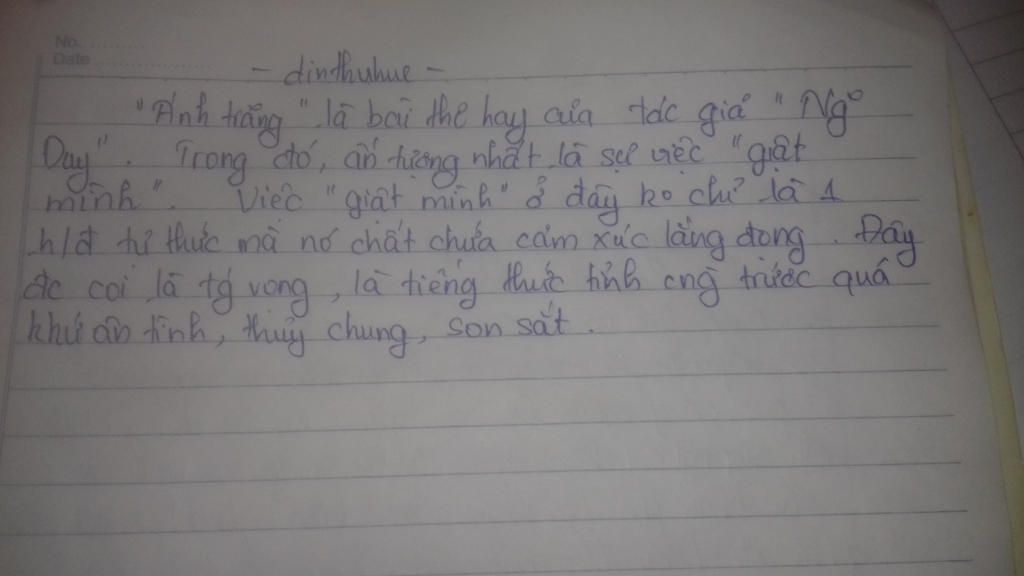 No. ...........
Date ......................
- dinthuhue -
"Ánh trăng" là bài thơ hay của tác giả "Ngô
Day". Trong đó, ấn tượng nhất là sự việc "giật
mình". Việc "giật mình" ở đây ko chỉ là 1
h/đ tư thức mà nó chất chứa cảm xúc lắng đọng. Đây
đc coi là tg vong, là tiếng thức tỉnh cng trước quá
khứ ân tình, thủy chung, son sắt.